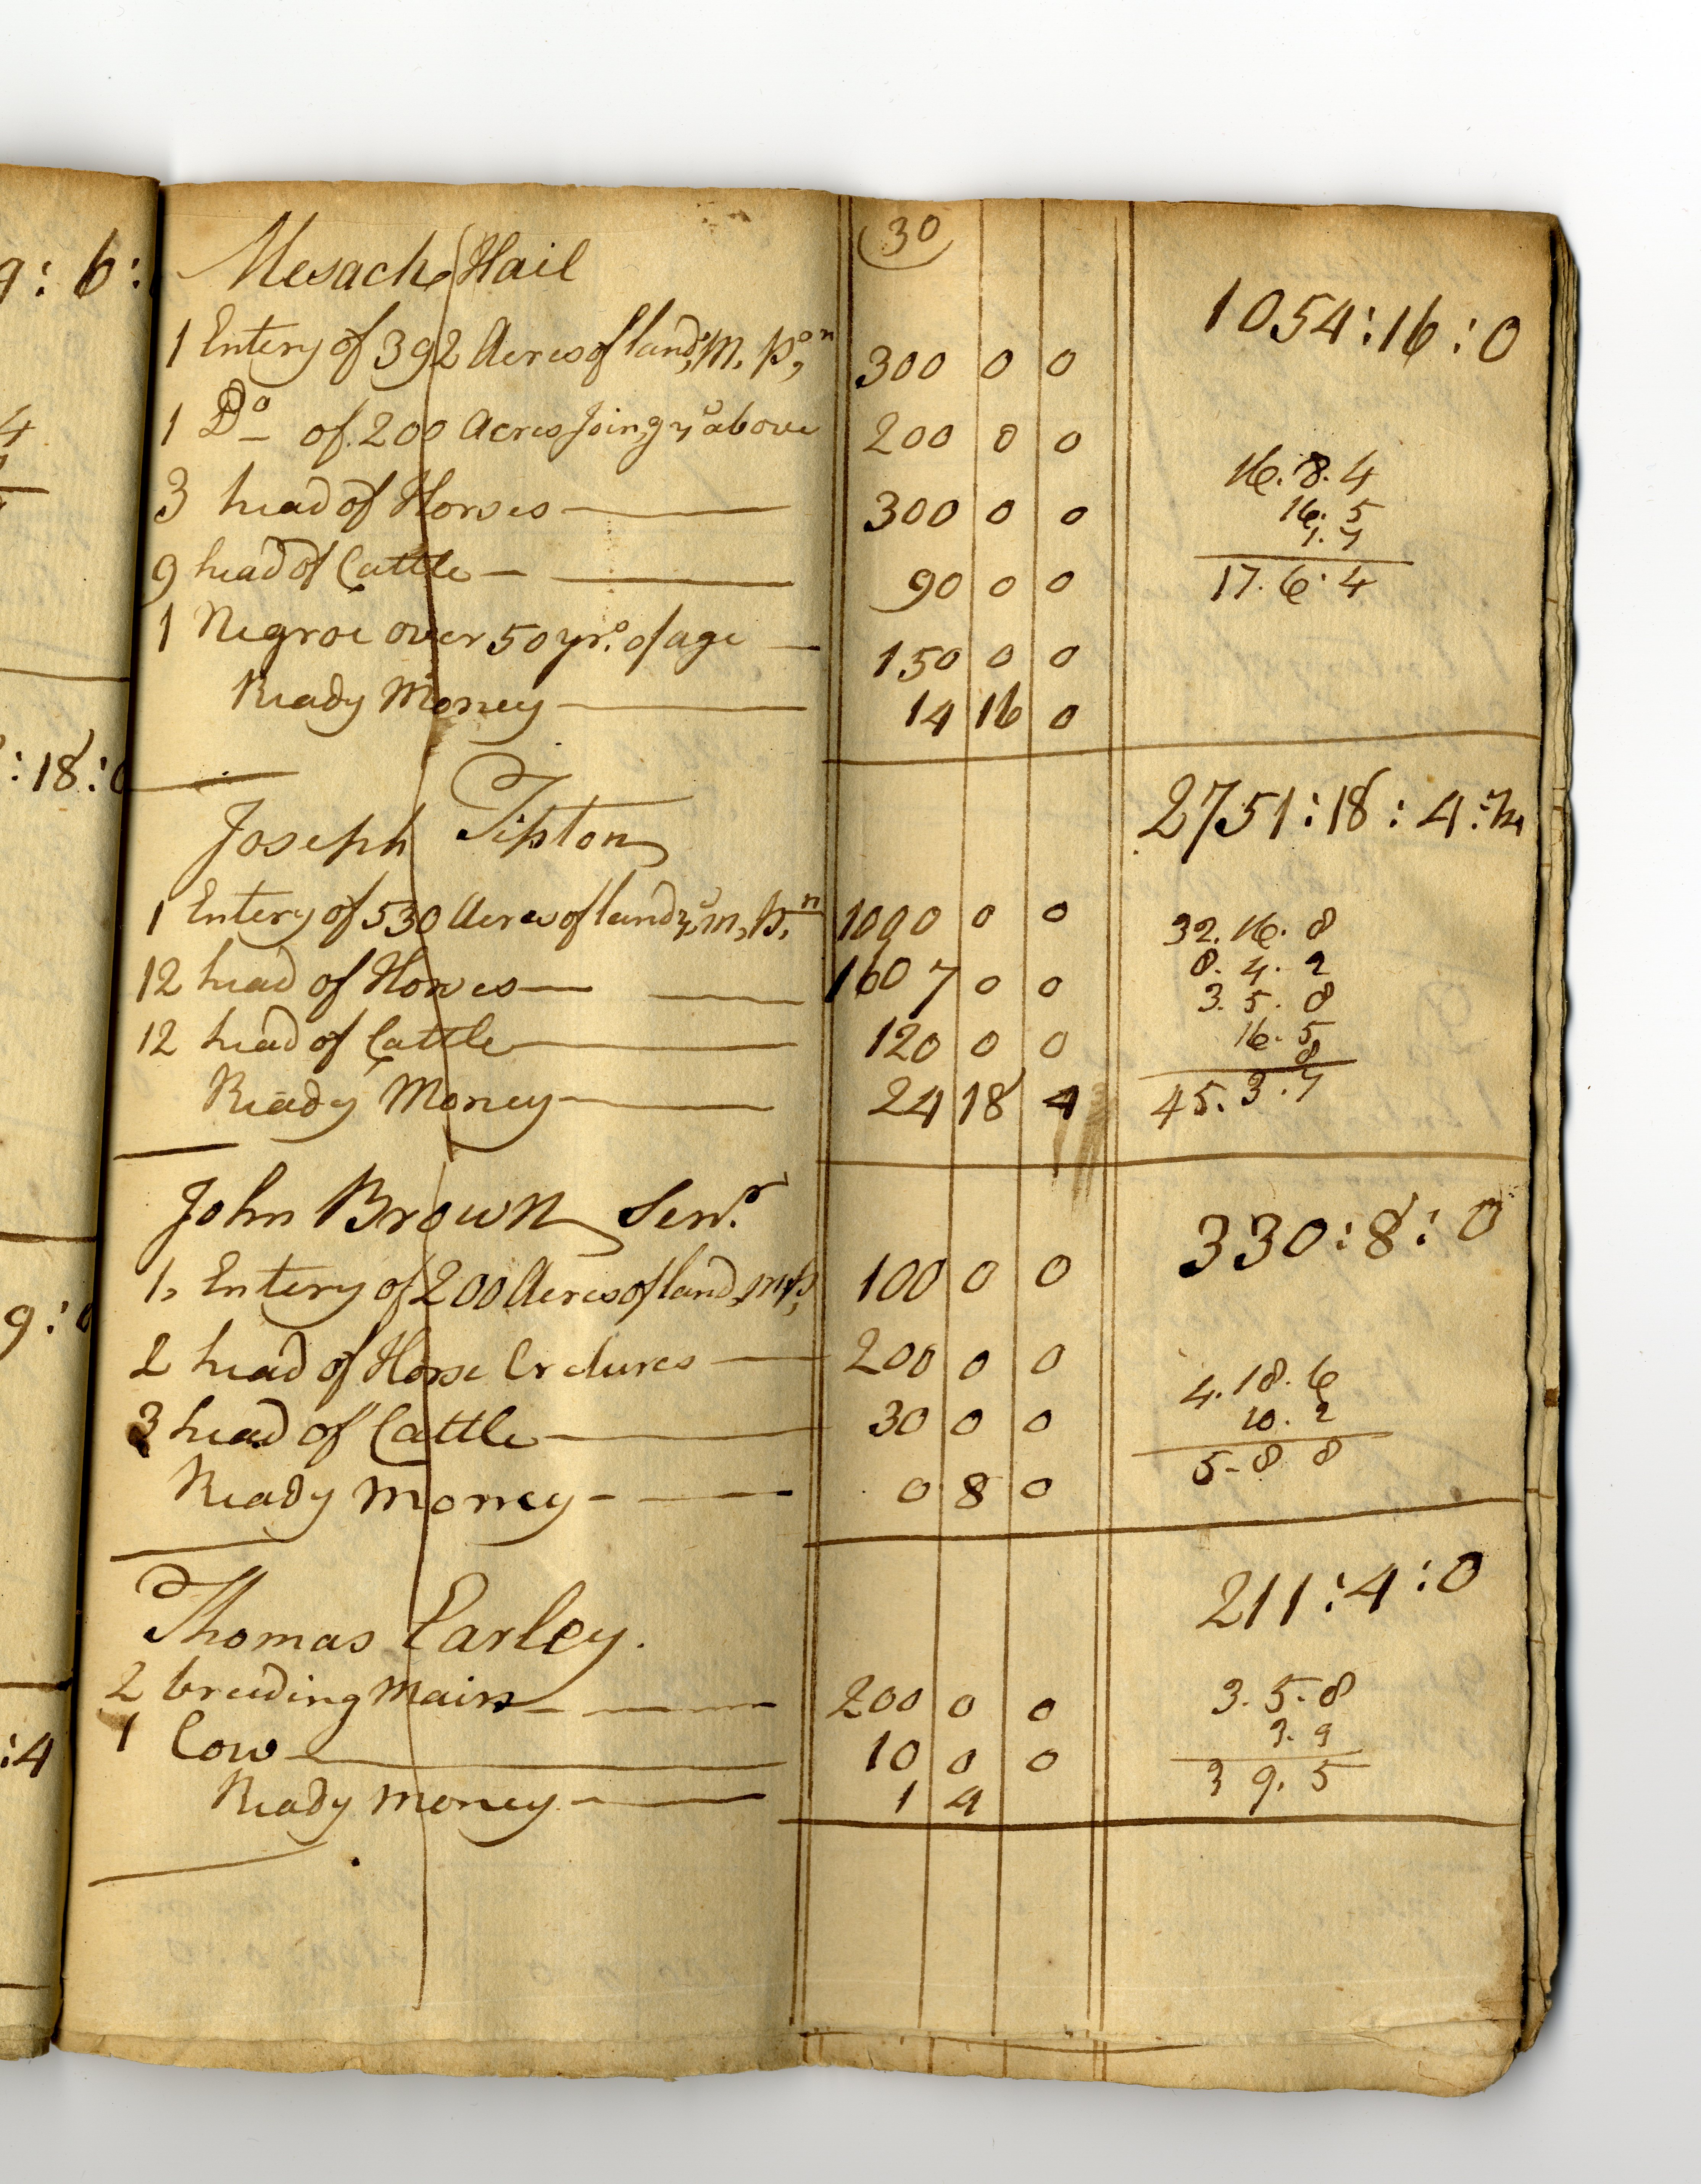 9: 6:
4
:18:0
9:0
:4
30
Mesach Hail
1054:16:0
1 Entery of 392 Acres of land, m, p,on 300 0 0
1 Do of 200 Acres Joing ye above 200 0 0
16.8.4
3 head of Horses 300 0 0
16.5
1.7
9 head of Cattle 90 0 0
17.6.4
1 Negroe over 50 yrs. of age 150 0 0
Ready Money 14 16 0
Joseph Tipton
2751:18:4:
1 Entery of 530 Acres of land ye m, p,n 1000 0 0
32.16.8
12 head of Horses 1607 0 0
8.4.2
3.5.8
12 head of Cattle 120 0 0
16.5
8
Ready Money 24 18 4
45.3.7
John Brown Senr.
330:8:0
1, Entery of 200 Acres of land, m, p, 100 0 0
2 head of Horse Cretures 200 0 0
4.18.6
3 head of Cattle 30 0 0
10.2
Ready money 0 8 0
5-8 8
Thomas Earley.
211:4:0
2 breeding mairs 200 0 0
3.5.8
1 Cow 10 0 0
3.9
Ready money 1 4
3 9.5